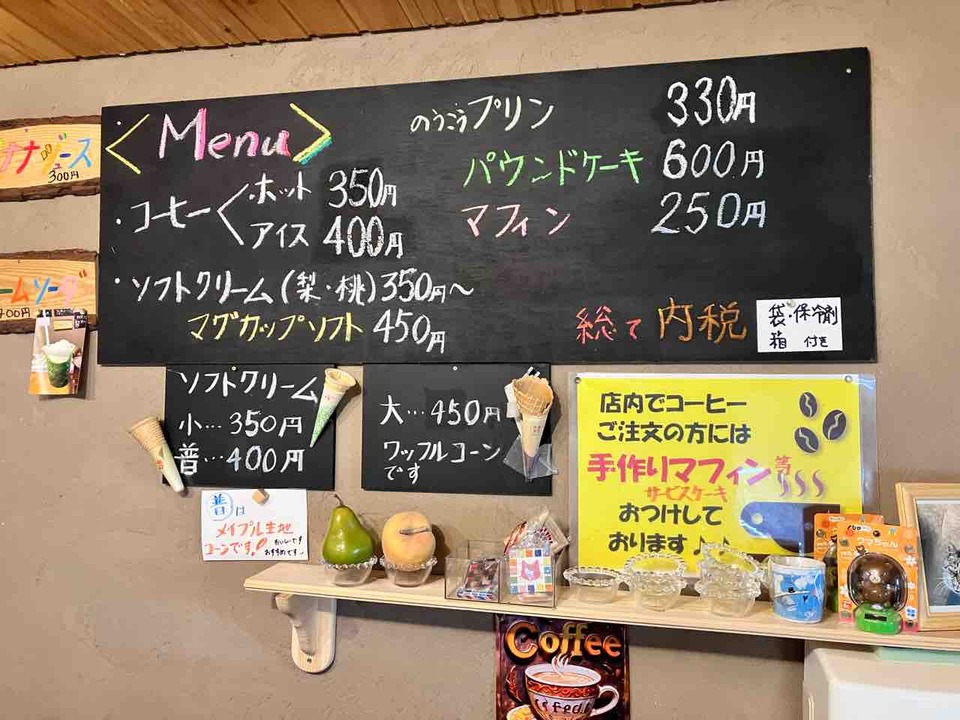 ナナジュース
300円
ームソーダ
400円
<Menu>
・コーヒー<・ホット 350円
アイス 400円
・ソフトクリーム(梨・桃)350円～
マグカップソフト 450円
のうこうプリン 330円
パウンドケーキ 600円
マフィン 250円
総て 内税
袋・保冷剤
箱 付き
ソフトクリーム
小…350円
普…400円
大…450円
ワッフルコーン
です
普は
メイプル生地
コーンです!!
おいしいです
おすすめです
店内でコーヒー
ご注文の方には
手作りマフィン等
サービスケーキ
おつけして
おります♪♪
Coffee